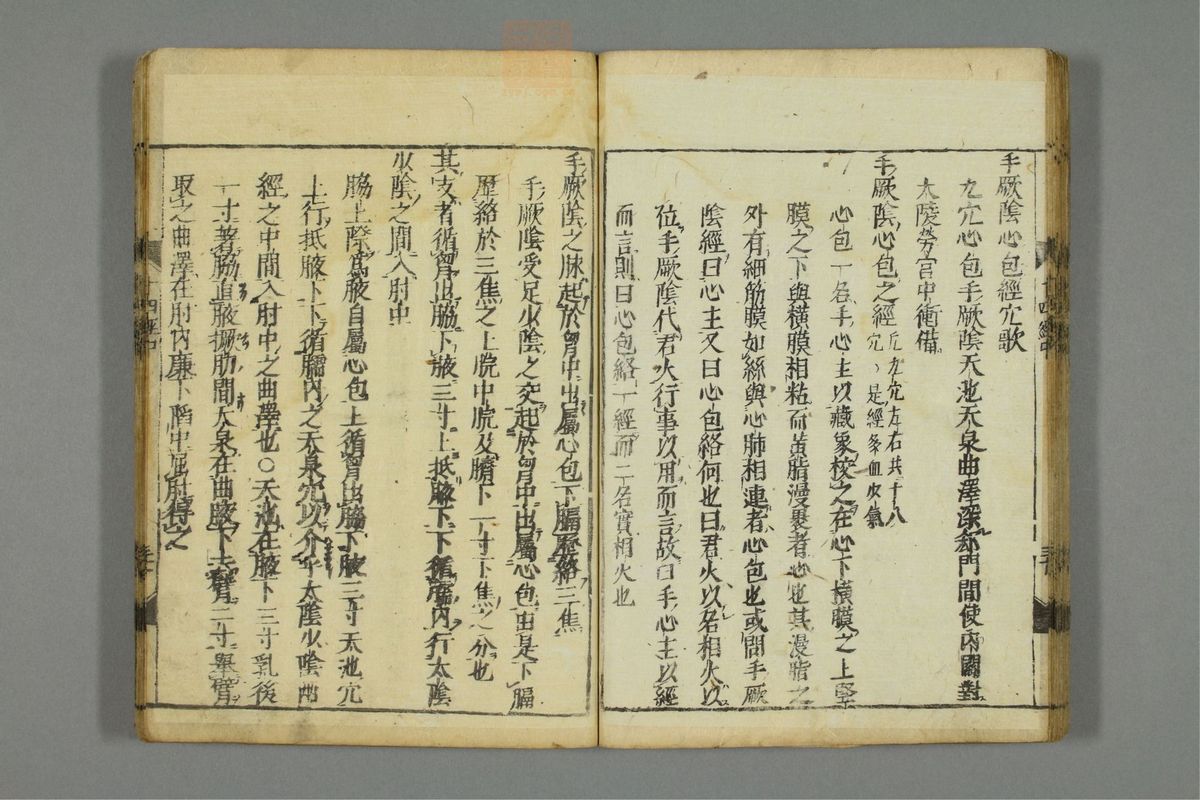 手厥陰心包經穴歌
九穴心包手厥陰天池天泉曲澤深郄門間使內關對
大陵勞宮中衝備
手厥陰心包之經
凡九穴左右共十八
穴是經多血少氣
心包一名手心主以藏象校之在心下橫膜之上竪
膜之下與橫膜相粘而黃脂漫裹者心也其漫脂之
外有細筋膜如絲與心肺相連者心包也或問手厥
陰經曰心主又曰心包絡何也曰君火以名相火以
位手厥陰代君火行事以用而言故曰手心主以經
而言則曰心包絡一經而二名實相火也
手厥陰之脉起於胷中出屬心包下膈歷絡三焦
手厥陰受足少陰之交起於胷中出屬心包由是下膈
歷絡於三焦之上脘中脘及臍下一寸下焦之分也
其支者循胷出脇下腋三寸上抵腋下下循臑內行太陰
少陰之間入肘中
脇上際爲腋自屬心包上循胷出脇下腋三寸天池穴
上行抵腋下下循臑內之天泉穴以介乎太陰少陰兩
經之中間入肘中之曲澤也○天池在腋下三寸乳後
一寸著脇直腋撅肋間天泉在曲腋下去臂二寸舉臂
取之曲澤在肘內廉下陷中屈肘得之
十四經中